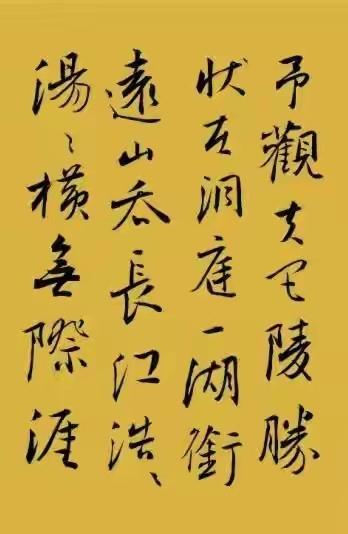 予觀夫巴陵勝
狀在洞庭一湖銜
遠山吞長江浩〻
湯〻橫無際涯